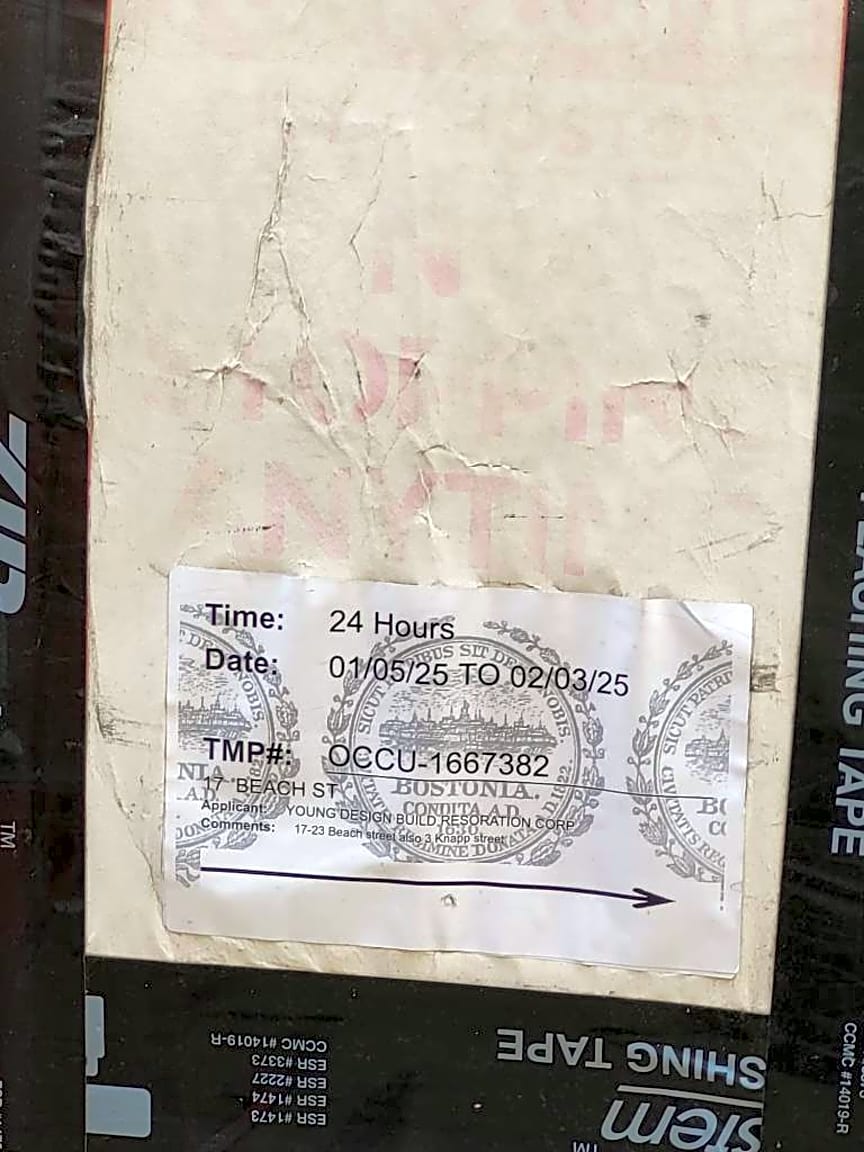 ANYTIME
Time: 24 Hours
Date: 01/05/25 TO 02/03/25
TMP#: OCCU-1667382
17 BEACH ST
Applicant: YOUNG DESIGN BUILD RESORATION CORP
Comments: 17-23 Beach street also 3 Knapp street
SICUT PATRIBUS SIT DEUS NOBIS
BOSTONIA.
CONDITA A.D.
1630.
SHING TAPE
stem
TM
CCMC #14019-R
ESR #3373
ESR #2227
ESR #1474
ESR #1473
TM
TAPE
CCMC #14019-R